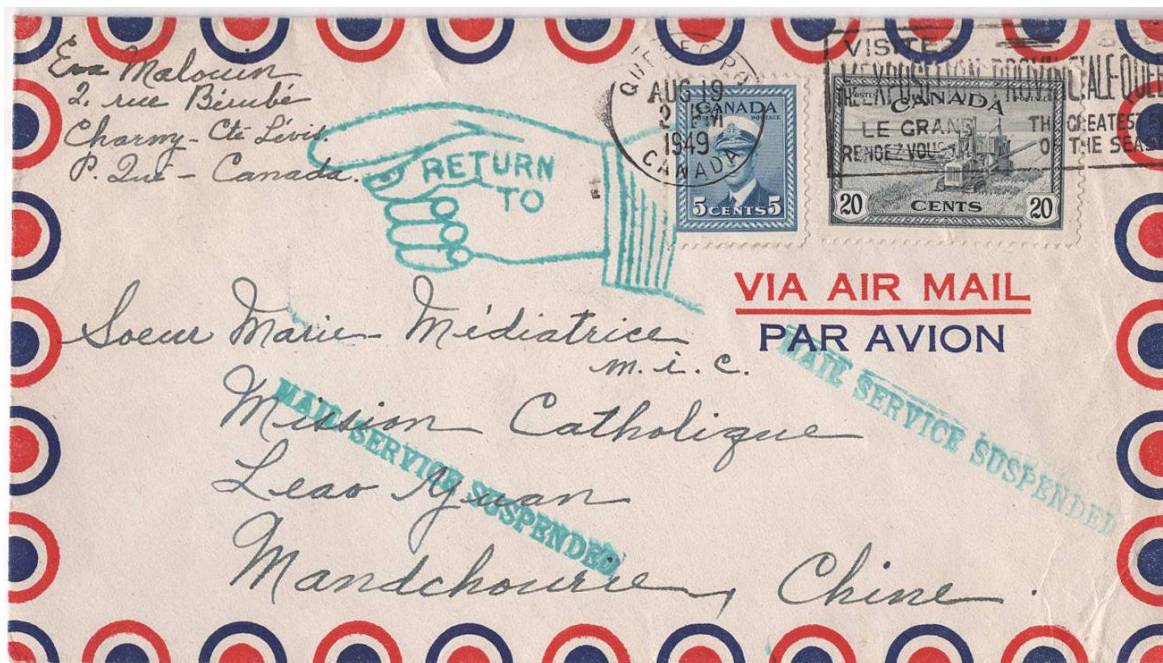 Eva Malouin
2. rue Bérubé
Charny - Cté Lévis.
P. Qué - Canada.
RETURN
TO
QUEBEC
AUG 19
PM
1949
CANADA
CANADA
POSTES POSTAGE
5 CENTS 5
VISITEZ
L'EXPOSITION PROVINCIALE QUE
LE GRAND
RENDEZ VOUS
THE GREATEST
OF THE SEAS
CANADA
20 CENTS 20
VIA AIR MAIL
PAR AVION
Soeur Marie-Médiatrice
m.i.c.
Mission Catholique
Leao Yuan
Mandchourie, Chine.
MAIL SERVICE SUSPENDED
MAIL SERVICE SUSPENDED